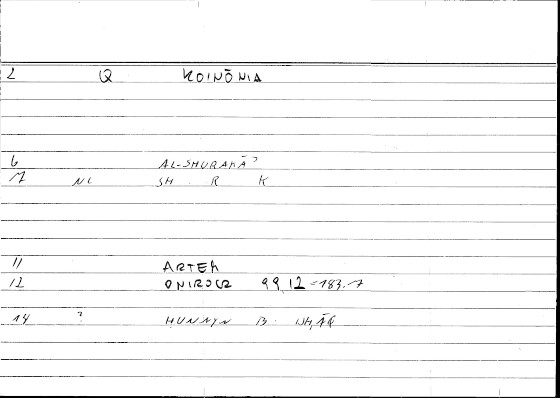 2 Q KOINŌNIA
6 AL-SHURAKĀʾ
7 NC SH R K
11 ARTEM
12 ONIROCR 99,12=183.7
14 ? HUNAYN B. ISḤĀQ